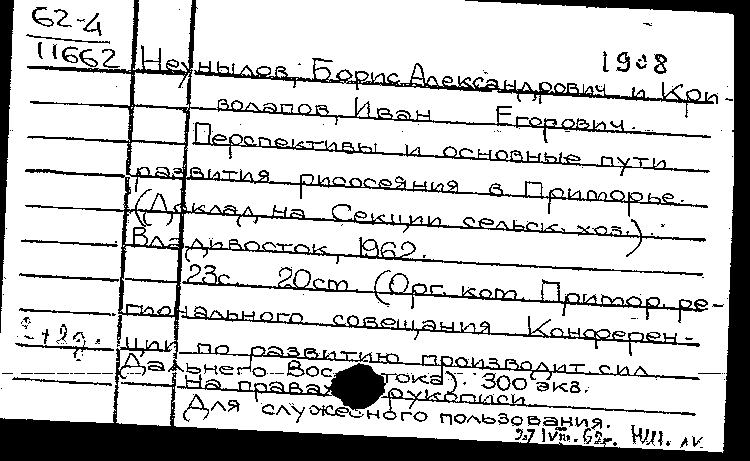 62-4
11662
1908
Неунылов, Борис Александрович и Кри-
волапов, Иван Егорович.
Перспективы и основные пути
развития рисосеяния в Приморье.
(Доклад на Секции сельск. хоз.).
Владивосток, 1962.
23с. 20см. (Орг. ком. Примор. ре-
гионального совещания Конферен-
ции по развитию производит. сил
Дальнего Востока). 300 экз.
На правах рукописи.
Для служебного пользования.
27 VIII. 62г.